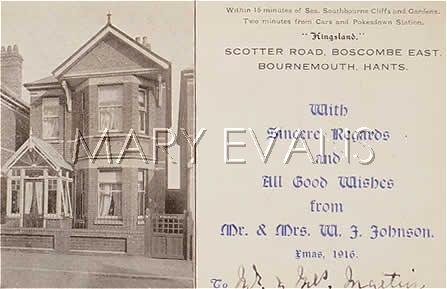 Within 15 minutes of Sea, Southbourne Cliffs and Gardens.
Two minutes from Cars and Pokesdown Station.
"Kingsland,"
SCOTTER ROAD, BOSCOMBE EAST,
BOURNEMOUTH, HANTS.
With
Sincere Regards
and
MARY EVANS
All Good Wishes
from
Mr. & Mrs. W. J. Johnson.
Xmas, 1916.
To Mr & Mrs. Martin